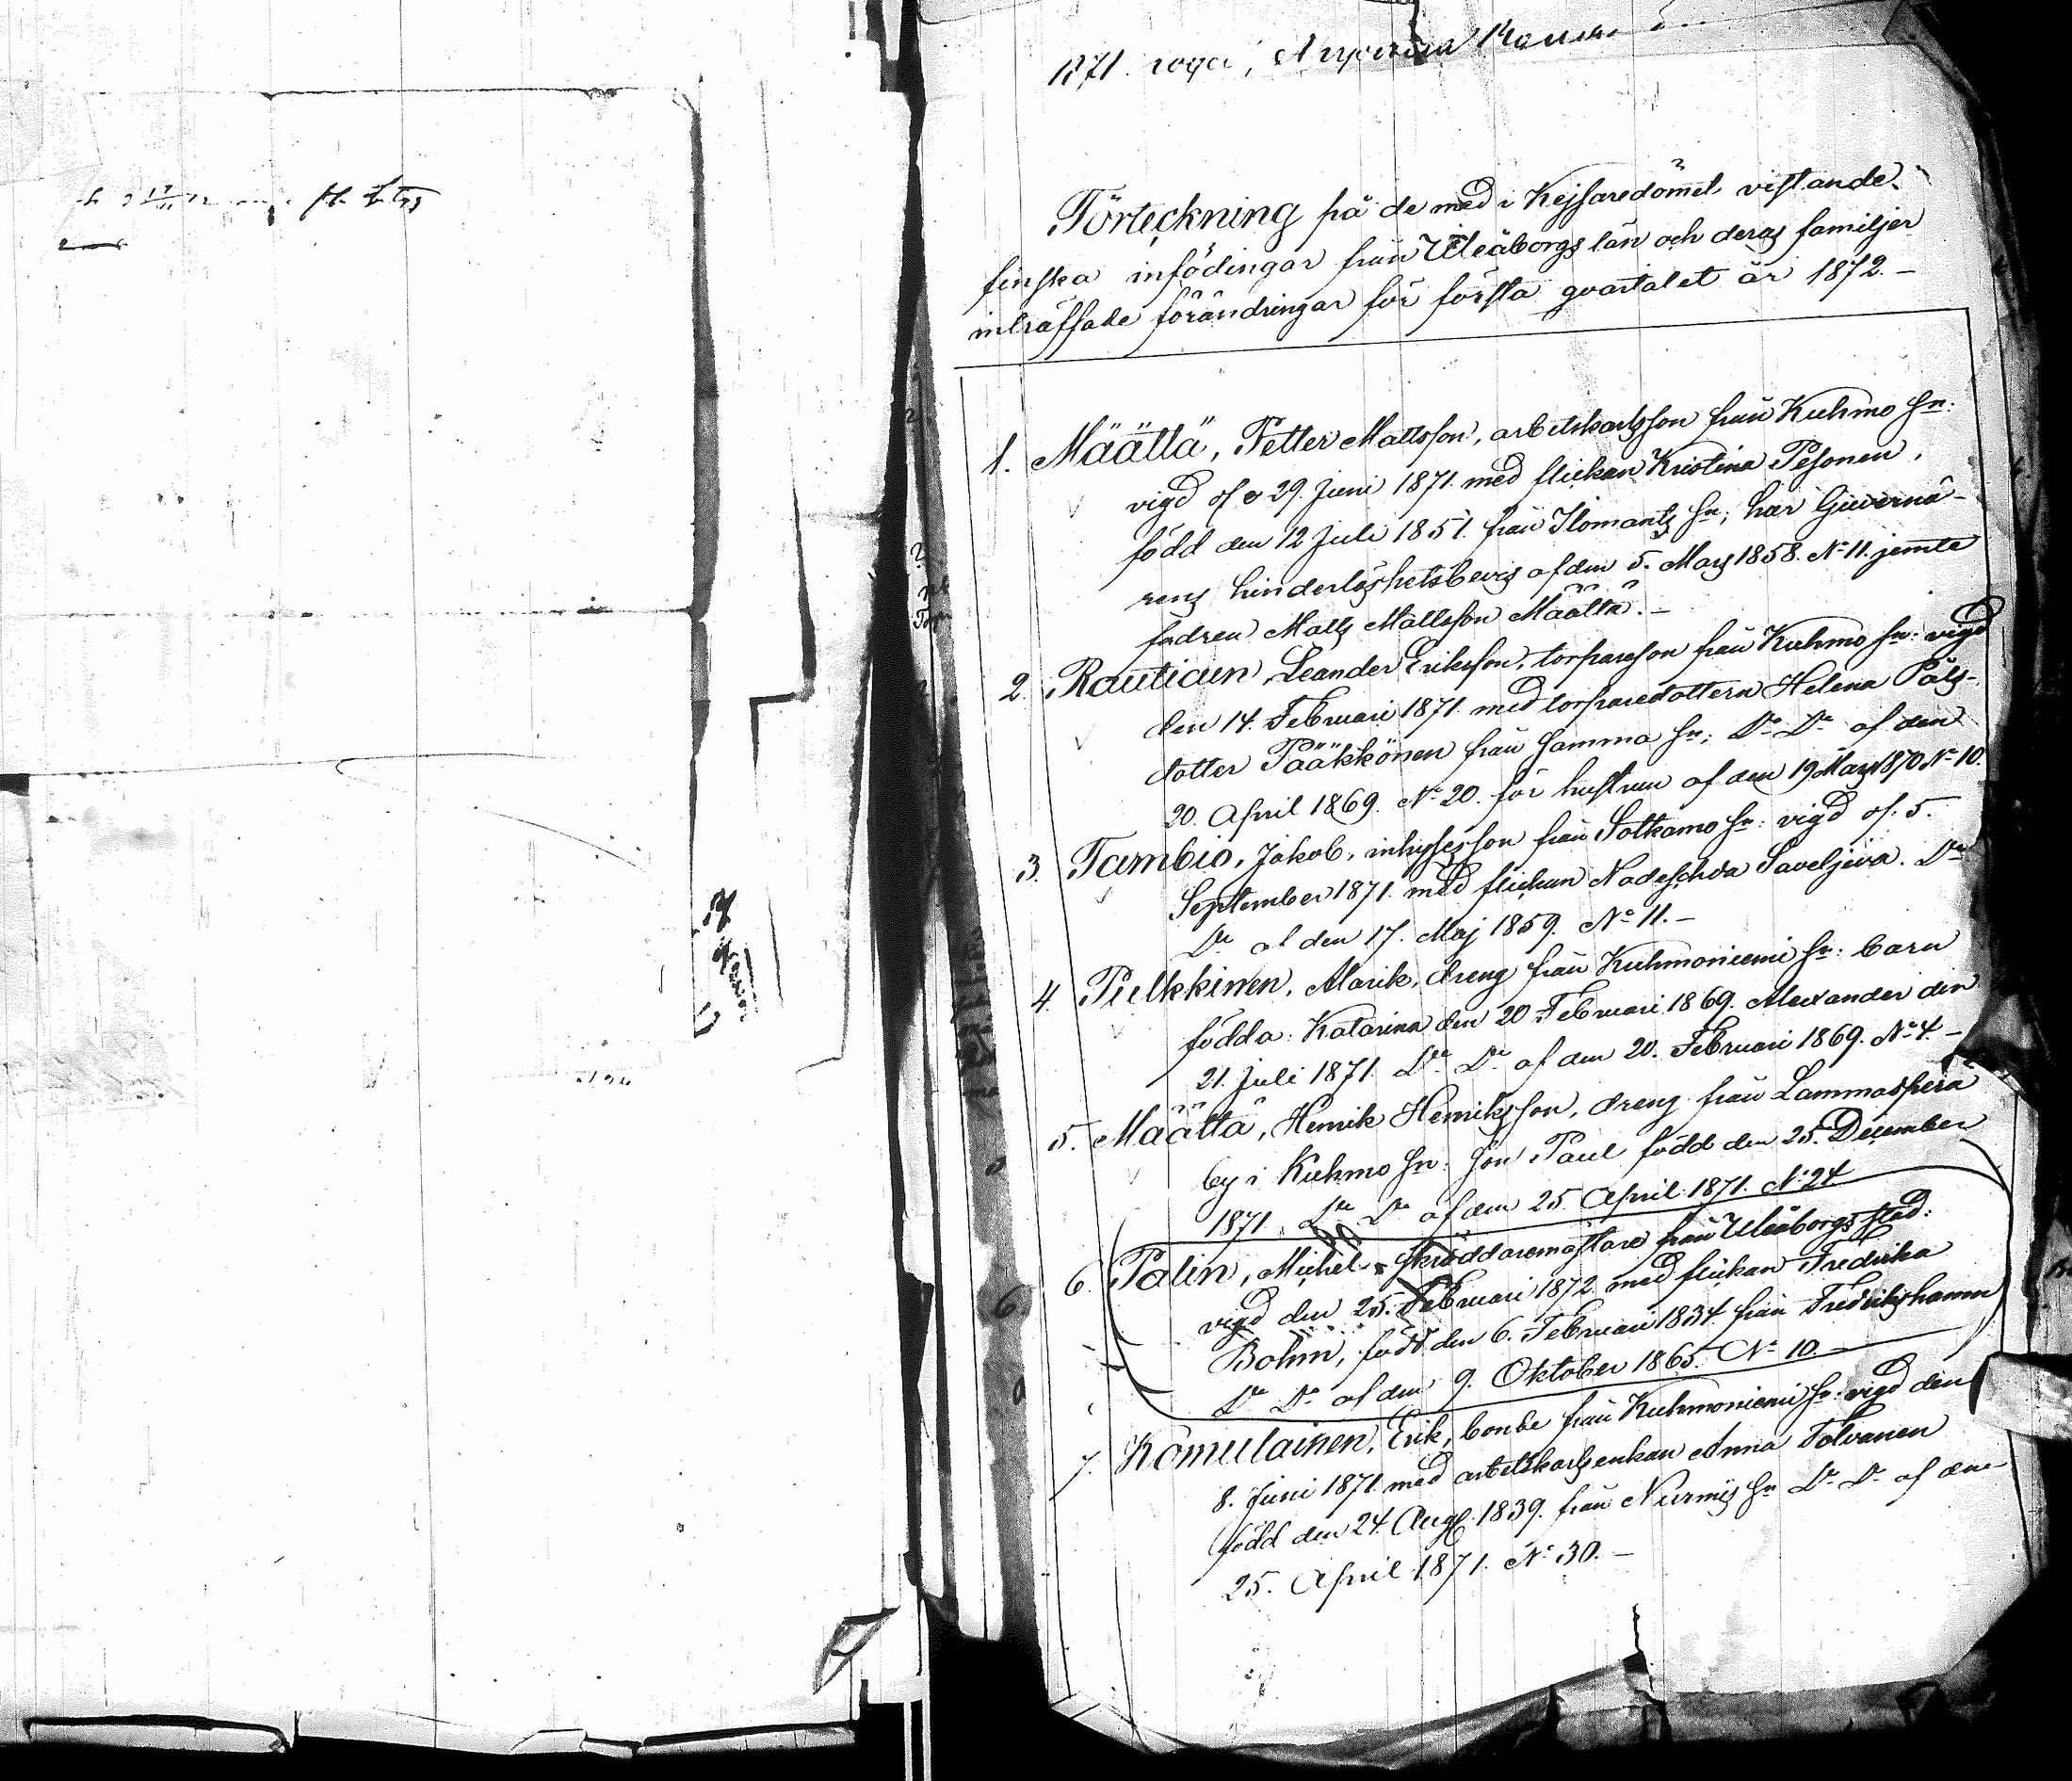 1871.
Förteckning på de med i Kejsaredömet vistande
finska infödingar från Uleåborgs län och deras familjer
inträffade förändringar för första qvartalet år 1872.—
1. Määttä, Petter Mattsson, arbetskarlsson från Kuhmo sn:
vigd of 29. Juni 1871. med flickan Kristina Pesonen,
född den 12 Juli 1851. från Ilomants sn; har Guvernö-
rens hinderlöshetsbevis af den 5. Mars 1858. No 11. jemte
fadren Matts Mattsson Määttä.—
2. Rautiaen, Leander Eriksson, torpareson från Kuhmo sn: vigd
den 14. Februari 1871. med torparedottern Helena Påls-
dotter Pääkkönen från samma sn; Do Do af den
20. April 1869. No 20. för hustrun af den 19 Mars 1870 No 10.
3. Tambio, Jakob, inhysesson från Sotkamo sn: vigd of. 5.
September 1871. med flickan Nadeschda Saveljeva. Do
Do af den 17. Maj 1859. No 11.—
4. Pielkkinen, Alarik, dreng från Kuhmoniemi sn: barn
födda: Katarina den 20 Februari 1869. Alexander den
21. Juli 1871. Do Do af den 20. Februari 1869. No 4.—
5. Määttä, Henrik Henriksson, dreng från Lammasperä
by i Kuhmo sn: son Paul född den 25. December
1871. Do Do af den 25 April 1871. No 24
6. Palin, Michel skräddaremästare från Uleåborgs stad:
vigd den 25. Februari 1872 med flickan Fredrika
Bohm, född den 6. Februari 1834. från Fredrikshamn
Do Do af den 9. Oktober 1865. No 10.—
7. Komulainen, Erik, bonde från Kuhmoniemi sn: vigd den
8. Juni 1871 med arbetskarlsenkan Anna Tolvanen
född den 24. Aug. 1839. från Nurmis sn Do Do af den
25. April 1871. No 30.—